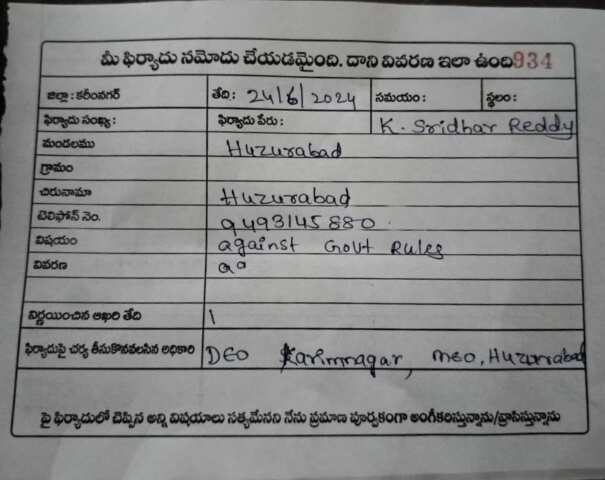 మీ ఫిర్యాదు నమోదు చేయడమైంది. దాని వివరణ ఇలా ఉంది 934
జిల్లా : కరీంనగర్ తేది: 24/6/2024 సమయం : స్థలం :
ఫిర్యాదు సంఖ్య : ఫిర్యాదు పేరు : K. Sridhar Reddy
మండలము Huzurabad
గ్రామం
చిరునామా Huzurabad
టెలిఫోన్ నెం. 9493145880
విషయం against Govt Rules
వివరణ
నిర్ణయించిన ఆఖరి తేది
ఫిర్యాదుపై చర్య తీసుకొనవలసిన అధికారి DEO Karimnagar, MEO, Huzurabad
పై ఫిర్యాదులో చెప్పిన అన్ని విషయాలు సత్యమేనని నేను ప్రమాణ పూర్వకంగా అంగీకరిస్తున్నాను/వ్రాసిస్తున్నాను